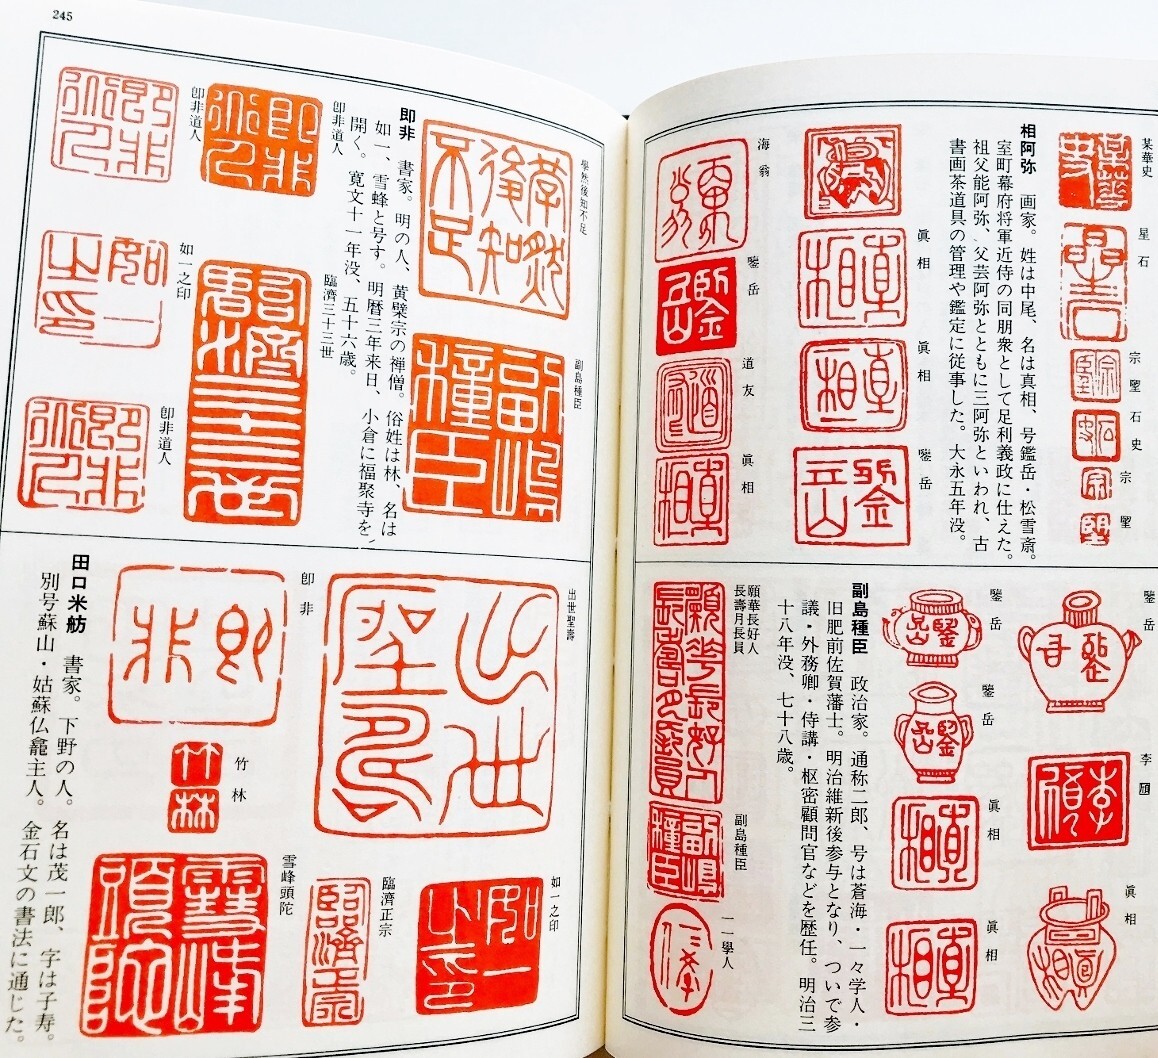 某華史
星石
宗㙒
石史
宗
㙒
相阿弥　画家。姓は中尾、名は真相、号鑑岳・松雪斎。
室町幕府将軍近侍の同朋衆として足利義政に仕えた。
祖父能阿弥、父芸阿弥とともに三阿弥といわれ、古
書画茶道具の管理や鑑定に従事した。大永五年没。
眞相
眞相
鑒岳
海翁
鑒岳
道友
眞相
鑒岳
李
眞相
鑒岳
鑒岳
眞相
眞相
副島種臣　政治家。通称二郎、号は蒼海・一々学人・
旧肥前佐賀藩士。明治維新後参与となり、ついで参
議・外務卿・侍講・枢密顧問官などを歴任。明治三
十八年没、七十八歳。
願華長好人
長壽月長員
副島種臣
一一學人
245
學然後知不足
副島種臣
即非　書家。明の人、黄檗宗の禅僧。俗姓は林、名は
如一、雪峰と号す。明暦三年来日、小倉に福聚寺を
開く。寛文十一年没、五十六歳。
臨濟三十三世
即非道人
即非道人
如一之印
即非道人
出世聖壽
即非
竹林
如一之印
臨濟正宗
雪峰頭陀
田口米舫　書家。下野の人。名は茂一郎、字は子寿。
別号蘇山・姑蘇仏龕主人。金石文の書法に通じた。